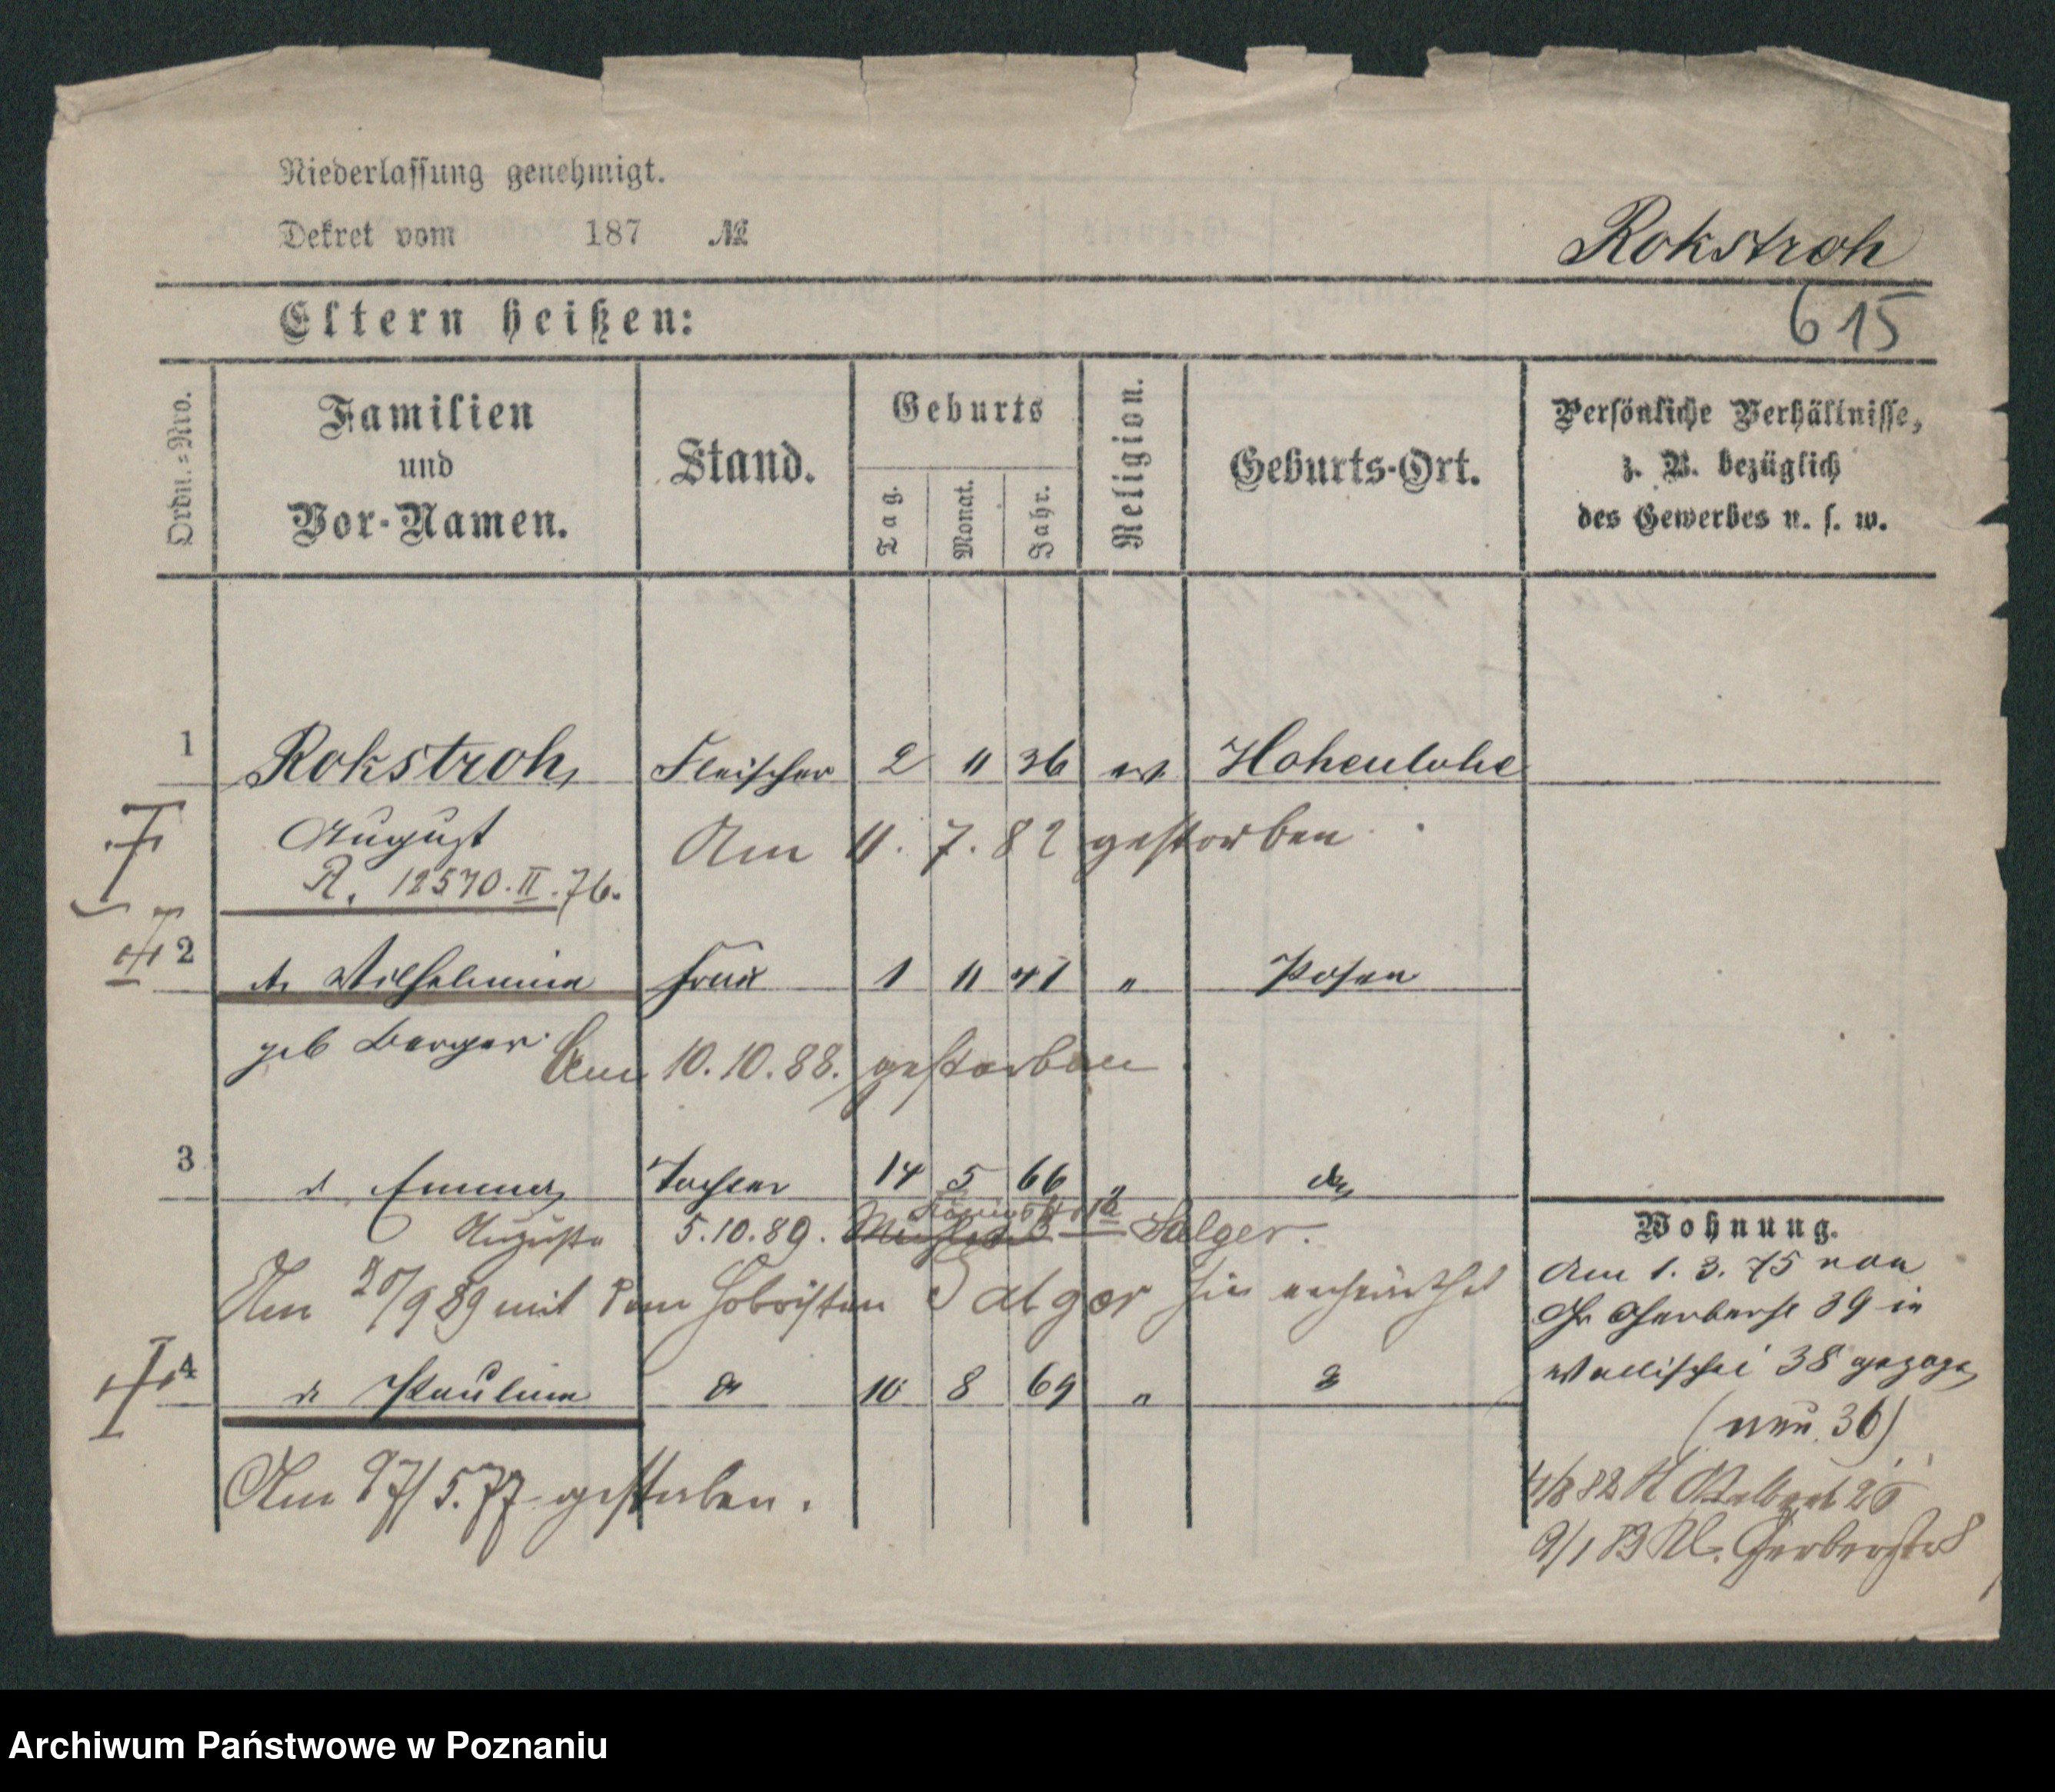 Niederlassung genehmigt.
Dekret vom 187 №
Rokstroh
615
Eltern heißen:
Ordn.=Nro.
Familien
und
Vor-Namen.
Stand.
Geburts
Tag.
Monat.
Jahr.
Religion.
Geburts-Ort.
Persönliche Verhältnisse,
z. B. bezüglich
des Gewerbes u. s. w.
1 Rokstroh, Fleischer 2 11 36 ev. Hohenlohe
August
Am 11. 7. 82 gestorben
R. 12570. II. 76.
2 Wilhelmine Frau 1 11 41 " Posen
geb Berger
Am 10. 10. 88. gestorben
3 Emma Tochter 14 5 66 "
Auguste 5.10.89. Salger.
Am /9 89 mit dem Hoboisten Salger hier verheirathet
4 Pauline 10 8 69 "
Am 27/5.77 gestorben.
Wohnung.
Am 1. 3. 75 von
Gr Gerberst 39 in
Wallischei 38 gezogen
(neu 36)
4/8 82 26
9/1 83 Kl. Gerberstr 8
Archiwum Państwowe w Poznaniu